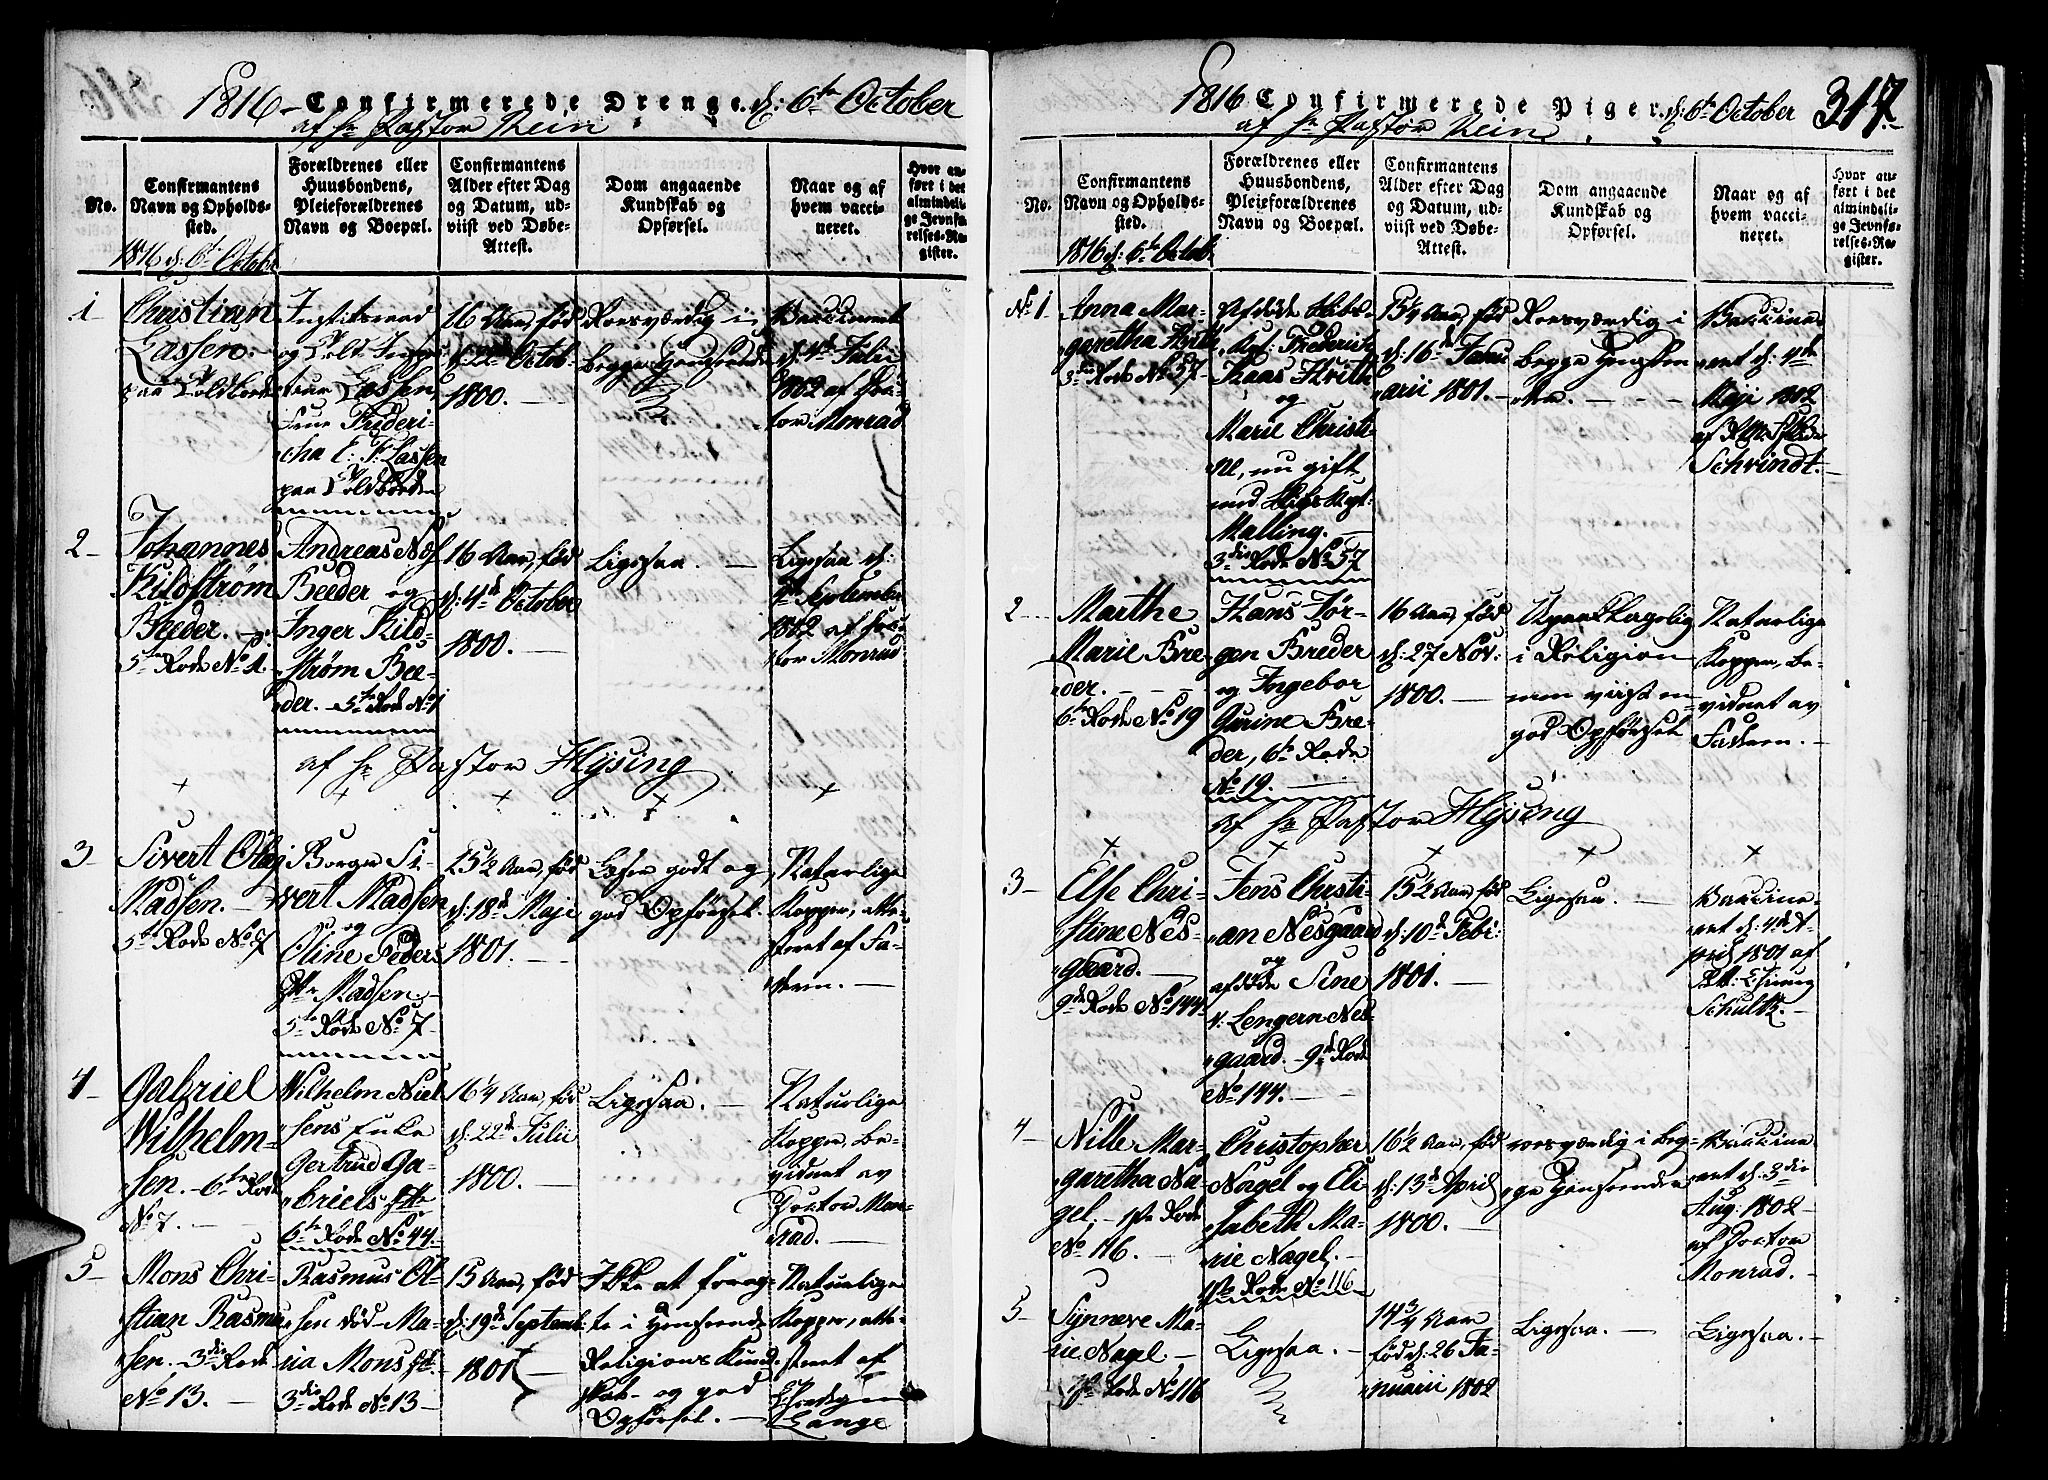 1816 – Confirmerede Drenge. d: 6te October
af Hr Pastor Rein
No.
Confirmantens
Navn og Opholds-
sted.
1816 d: 6te October
Forældrenes eller
Huusbondens,
Pleieforældrenes
Navn og Boepæl.
Confirmantens
Alder efter Dag
og Datum, ud-
viist ved Døbe-
Attest.
Dom angaaende
Kundskab og
Opførsel.
Naar og af
hvem vacci-
neret.
Hvor an-
ført i det
almindeli-
ge Jevnfø-
relses-Re-
gister.
1
Christian
Lassen.
paa Toldboden
og Told
Lassen
Frue Frederi-
cha E: F: Lassen
paa Toldboden
16 Aar, fød
d: 22de Octob.
1800. –
Roesværdig i
begge Henseende
Vaccineret
d: 4de Julii
1802 af Doc-
tor Monrad
2 –
Johannes
Kildstrøm
Beeder. –
5te Rode No 1.
Andreas
Beeder og
Inger Kild-
strøm Bee-
der. – 5te Rode No 1
16 Aar, fød
d: 4de October
1800. –
Ligesaa. –
Ligesaa d:
September
1802 af Doc-
tor Monrad
af Hr Pastor Hysing
3 –
Sivert Olai
Madsen. –
5te Rode No 7
Borger Si-
vert Madsen
og
Oline Peders
Madsen. –
5te Rode No 7 –
15½ Aar, fød
d: 18de Maji
1801. –
Læser godt og
god Opførsel.
Naturlige
Kopper, atte-
steret af Fa-
deren. –
4 –
Gabriel
Wilhelm-
sen. – 6te Rode
No 7. –
Wilhelm Niel-
sens Enke
Gertrud Ga-
briels
6te Rode No 44. –
16¼ Aar, fød
d: 22de Julii
1800. –
Ligesaa. –
Naturlige
Kopper, be-
vidnet av
Doctor Mon-
rad. –
5 –
Mons Chri-
stian Rasmu-
sen. 3die Rode
No 13. –
Rasmus Ol-
sen død – Ma-
ria Mons
3die Rode No 13 –
15 Aar, fød
d: 19de Septemb
1801 –
Ikke at forag-
te i Henseende
Religions Kund-
skab – og god
Opførsel. –
Naturlige
Kopper, atte-
steret af
Lange
1816 Confirmerede Piger. d: 6te October
317. –
af Hr Pastor Rein
No.
Confirmantens
Navn og Opholds-
sted.
1816 d: 6te Octob:
Forældrenes eller
Huusbondens,
Pleieforældrenes
Navn og Boepæl.
Confirmantens
Alder efter Dag
og Datum, ud-
viist ved Døbe-
Attest.
Dom angaaende
Kundskab og
Opførsel.
Naar og af
hvem vacci-
neret.
Hvor an-
ført i det
almindeli-
ge Jevnfø-
relses-Re-
gister.
No 1.
Anna Mar-
garetha
3die Rode No 57 –
Afdøde Skibs-
Frederich
Kaas
og
Marie Christi-
ne, nu gift
med
Malling. –
3die Rode No 57
15¾ Aar, fød
d: 16de Janu
arii 1801. –
Roesværdig i
begge Henseen-
der. – – –
Vaccine-
ret d: 4de
Maji 1802
af
Schvindt. –
2 –
Marthe
Marie Bre-
der. – – –
6te Rode No 19
Hans Jør-
gen Breder
og Ingebor
Gurine Bre-
der, 6te Rode
No 19. –
16 Aar, fød
d: 27 Nov:
1800. –
i Religion
men viist en
god Opførsel
Naturlige
Kopper, be-
vidnet av
Faderen. –
af Hr Pastor Hysing
3 –
Else Chri-
stine Nes-
gaard. –
9de Rode No 144.
Jens Christi-
an Nesgaard
og
afdøde Sine
v: Lengern Nes-
gaard. – 9de Rode
No 144. –
15½ Aar, fød
d: 10de Febr:
1801. –
Ligesaa. –
Vaccine-
ret d: 4de A-
pril 1801 af
Schultz. –
4 –
Nille Mar-
garetha Na-
gel. – 1ste Rode
No 116. –
Christopher
Nagel og Eli-
sabeth Ma-
rie Nagel. –
1ste Rode No 116
16½ Aar, fød
d: 13de April
1800. –
roesværdig i beg-
ge Henseender
Vaccine-
ret d: 3die
Aug: 1802 –
af Doctor
Monrad. –
5 –
Synneve Ma-
rie Nagel. –
1ste Rode No 116
Ligesaa. –
14¾ Aar
fød d: 26 Ja-
nuarii 1802
Ligesaa. –
Ligesaa. –